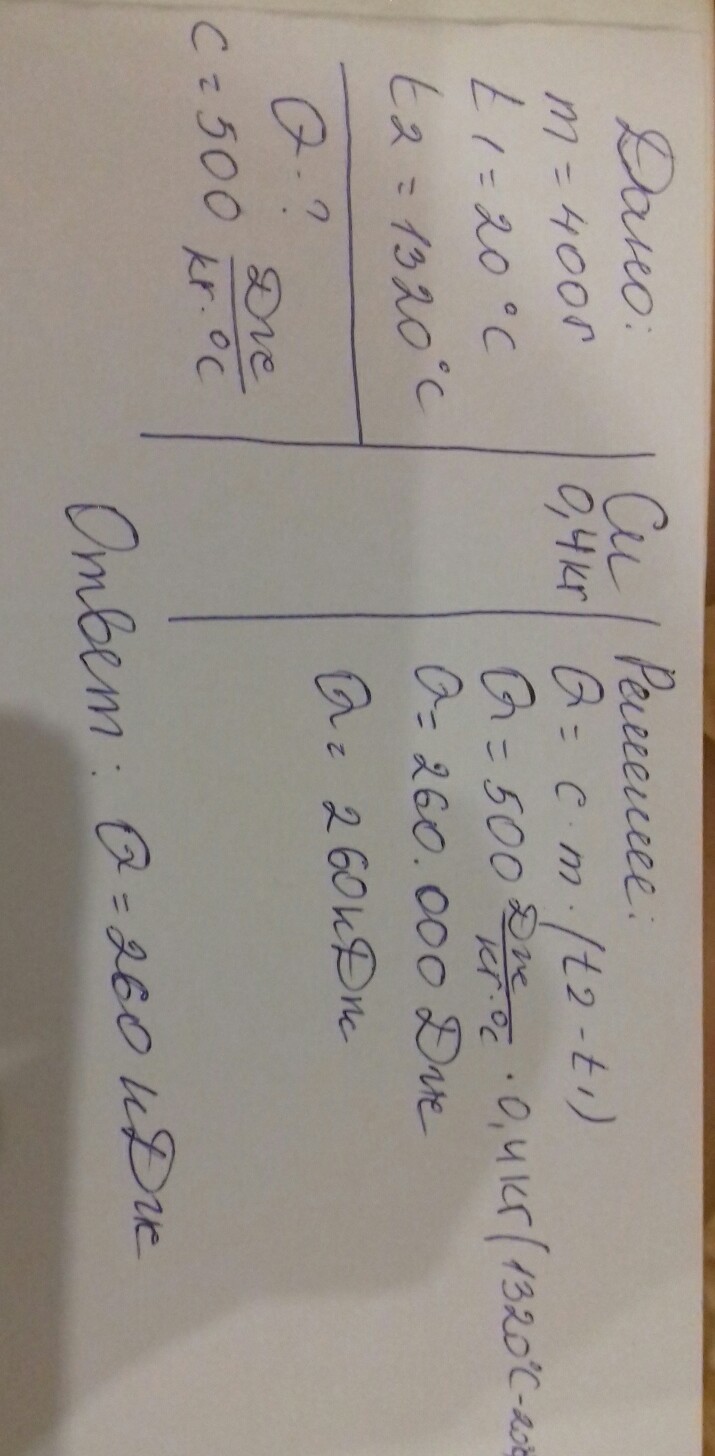 Дано:
m = 400г
t1 = 20°C
t2 = 1320°C
Q - ?
c = 500 Дж/кг·°C
Си
0,4кг
Решение:
Q = c · m · (t2 - t1)
Q = 500 Дж/кг·°C · 0,4кг (1320°C - 20°
Q = 260.000 Дж
Q = 260кДж
Ответ: Q = 260 кДж